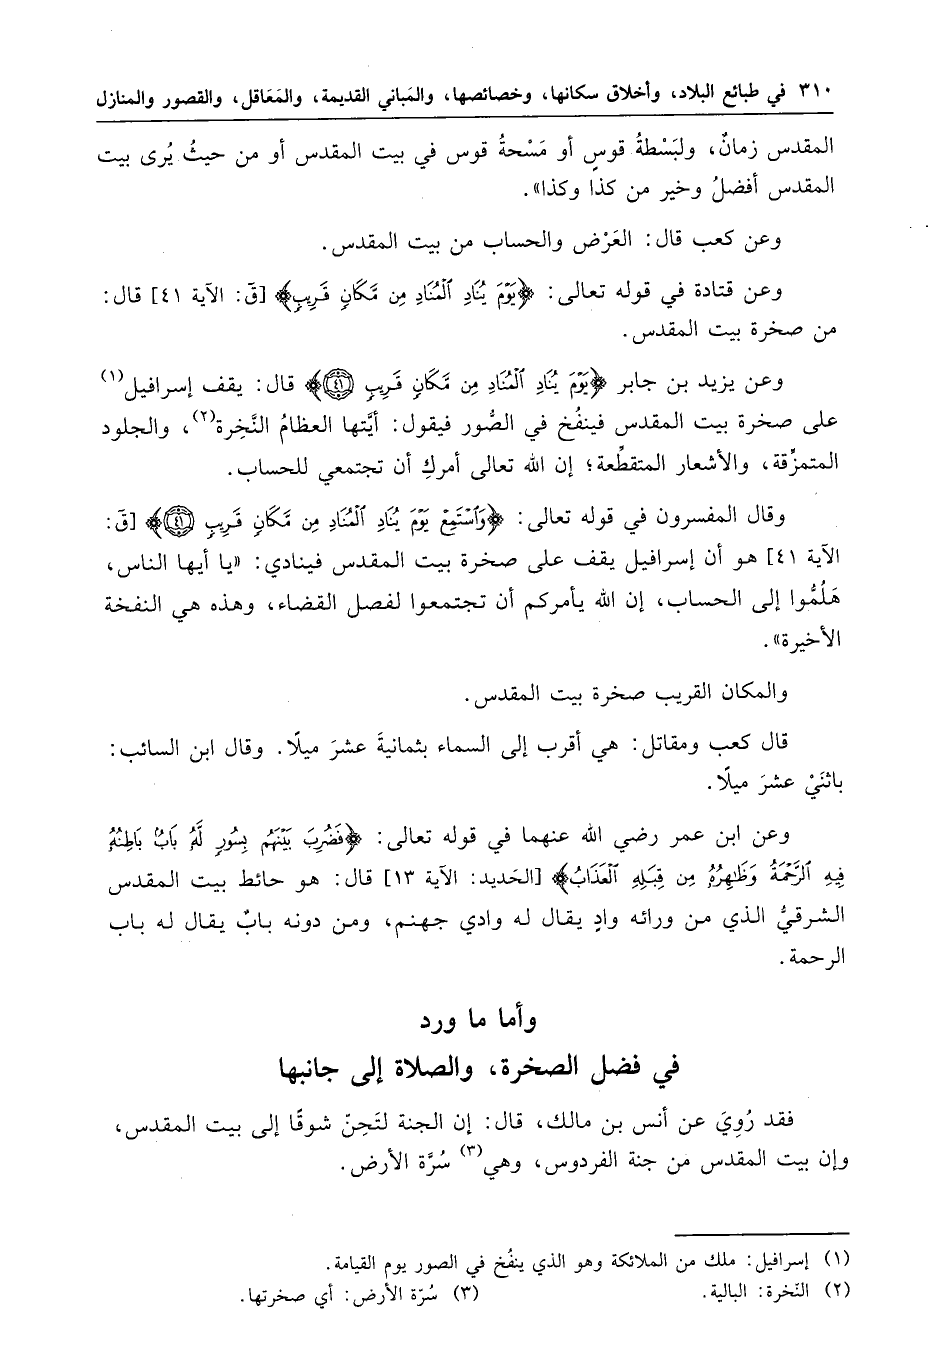 ٣١٠ في طبائع البلاد، وأخلاق سكانها، وخصائصها، والمَباني القديمة، والمَعَاقل، والقصور والمنازل
المقدس زمانٌ، ولبَسْطةُ قوسٍ أو مَسْحةُ قوس في بيت المقدس أو من حيثُ يُرى بيت
المقدس أفضلُ وخير من كذا وكذا».
وعن كعب قال: العَرْض والحساب من بيت المقدس.
وعن قتادة في قوله تعالى: ﴿يَوْمَ يُنَادِ ٱلْمُنَادِ مِن مَّكَانٍ قَرِيبٍ﴾ [قَ: الآية ٤١] قال:
من صخرة بيت المقدس.
وعن يزيد بن جابر ﴿يَوْمَ يُنَادِ ٱلْمُنَادِ مِن مَّكَانٍ قَرِيبٍ ٤١﴾ قال: يقف إسرافيل(١)
على صخرة بيت المقدس فينفُخ في الصُّور فيقول: أيَّتها العظامُ النَّخِرة(٢)، والجلود
المتمزِّقة، والأشعار المتقطِّعة؛ إن الله تعالى أمركِ أن تجتمعي للحساب.
وقال المفسرون في قوله تعالى: ﴿وَٱسْتَمِعْ يَوْمَ يُنَادِ ٱلْمُنَادِ مِن مَّكَانٍ قَرِيبٍ ٤١﴾ [قَ:
الآية ٤١] هو أن إسرافيل يقف على صخرة بيت المقدس فينادي: «يا أيها الناس،
هَلُمُّوا إلى الحساب، إن الله يأمركم أن تجتمعوا لفصل القضاء، وهذه هي النفخة
الأخيرة».
والمكان القريب صخرة بيت المقدس.
قال كعب ومقاتل: هي أقرب إلى السماء بثمانيةَ عشرَ ميلًا. وقال ابن السائب:
باثنَيْ عشرَ ميلًا.
وعن ابن عمر رضي الله عنهما في قوله تعالى: ﴿فَضُرِبَ بَيْنَهُم بِسُورٍ لَّهُۥ بَابٌ بَاطِنُهُۥ
فِيهِ ٱلرَّحْمَةُ وَظَٰهِرُهُۥ مِن قِبَلِهِ ٱلْعَذَابُ﴾ [الحَديد: الآية ١٣] قال: هو حائط بيت المقدس
الشرقيُّ الذي من ورائه وادٍ يقال له وادي جهنم، ومن دونه بابٌ يقال له باب
الرحمة.
وأما ما ورد
في فضل الصخرة، والصلاة إلى جانبها
فقد رُوِيَ عن أنس بن مالك، قال: إن الجنة لتَحِنّ شوقًا إلى بيت المقدس،
وإن بيت المقدس من جنة الفردوس، وهي(٣) سُرَّة الأرض.
(١) إسرافيل: ملك من الملائكة وهو الذي ينفُخ في الصور يوم القيامة.
(٢) النّخرة: البالية. (٣) سُرّة الأرض: أي صخرتها.